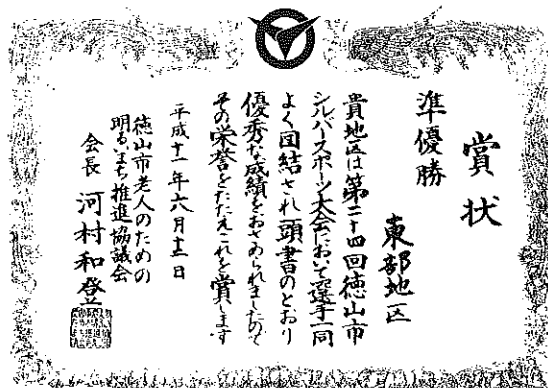 賞状
準優勝
東部地区
貴地区は第二十四回徳山市
シルバースポーツ大会において選手一同
よく団結され頭書のとおり
優秀な成績をおさめられましたので
その栄誉をたたえこれを賞します
平成十一年六月十三日
徳山市老人のための
明るいまち推進協議会
会長 河村和登